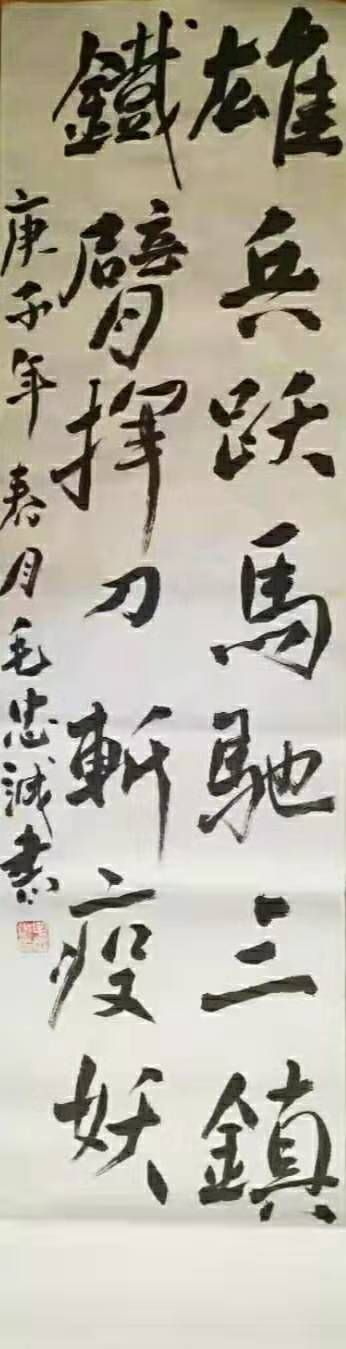 雄兵跃馬馳三鎮
鐵臂揮刀斬疫妖
庚子年春月毛忠誠書